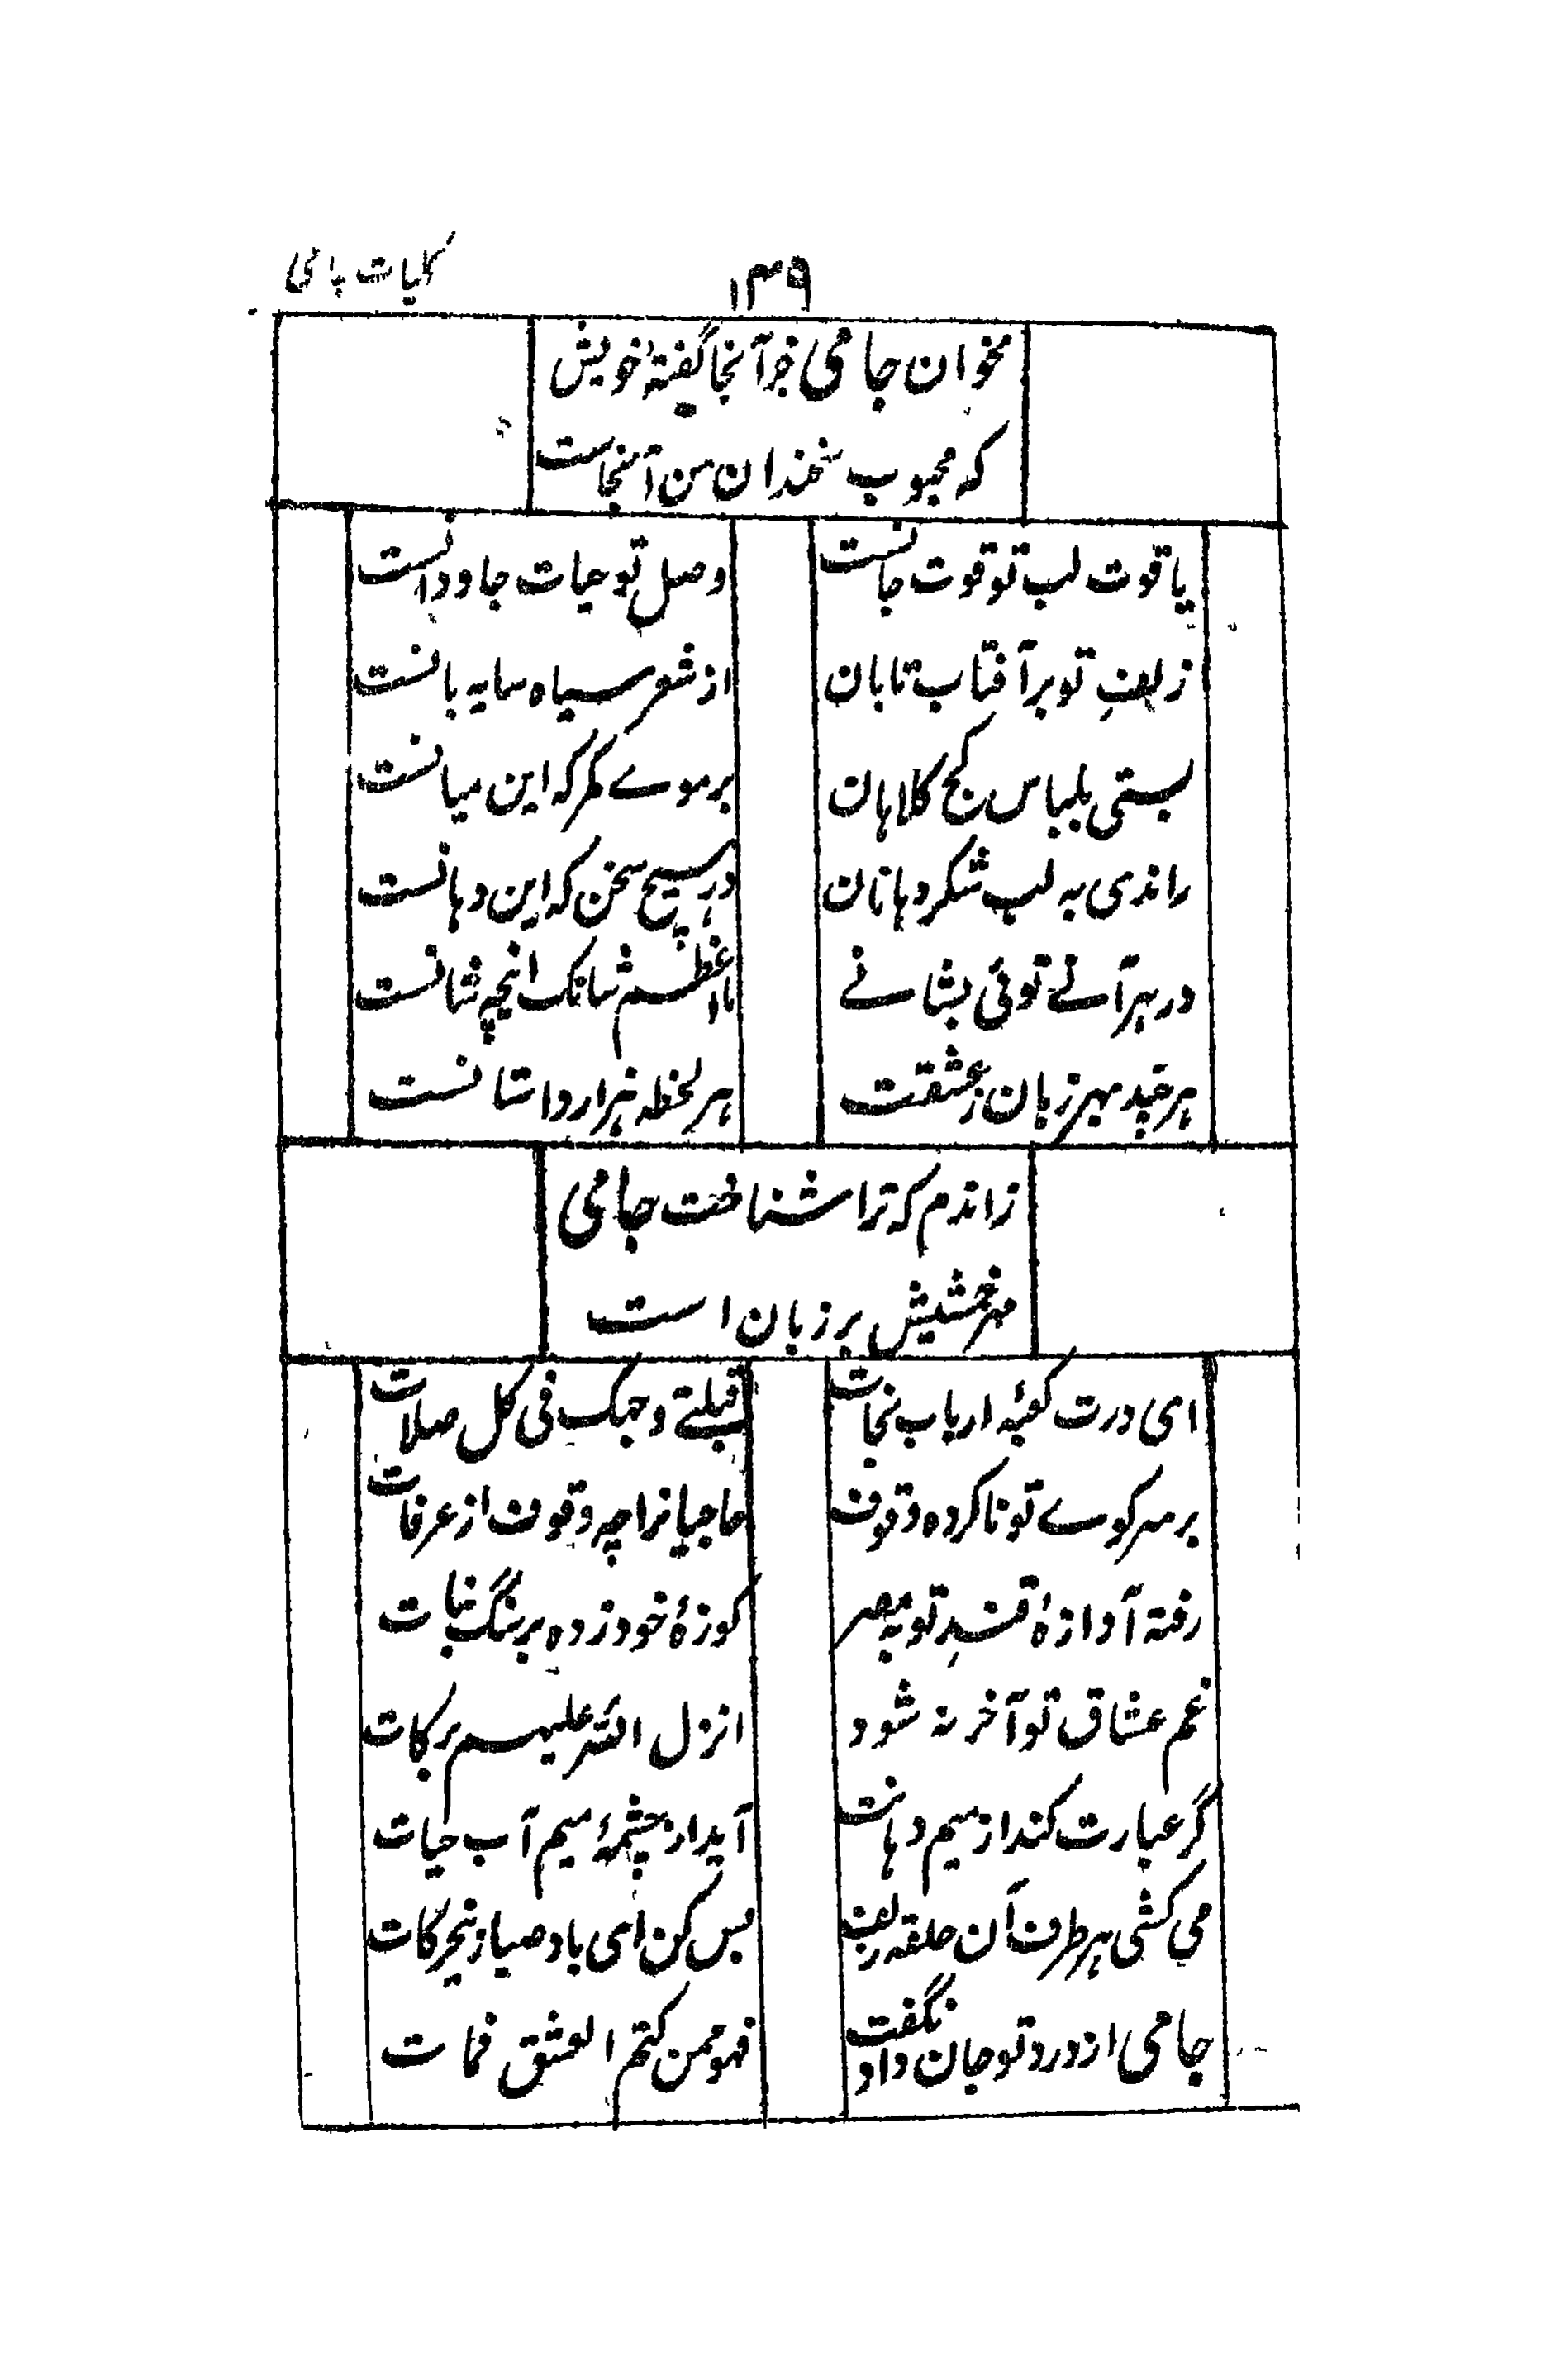 ۱۴۹
کلیات جامی
مخوان جامی جز آنجا گفتهٔ خویش
که محبوب سخندان من آنجاست
یاقوت لب تو قوت جانست
وصل تو حیات جاودانست
زلفِ تو بر آفتاب تابان
از شعر سیاه سایه بانست
بستی بلباس کج کلاهان
بر موے کمر که این میانست
راندی به لب شکر دهانان
در هیچ سخن که این دهانست
در هر آنے توئی بشانے
ما اعظم شانک اینچه شانست
هر چند بهر زبان ز عشقت
هر لحظه هزار داستانست
زاندم که ترا شناخت جامی
مهر خمشیش بر زبان است
ای درت کعبهٔ ارباب نجات
قبلتے وجهک فی کل صلات
بر سر کوے تو نا کرده وقوف
حاجیانرا چه وقوف از عرفات
رفته آوازهٔ قندِ تو به مصر
کوزهٔ خود زده بر سنگ نبات
غم عشاق تو آخر نه شود
انزل الله علیهم برکات
گر عبارت کند از میم دهانت
آید از چشمهٔ میم آب حیات
می کشی هر طرف آن حلقه زلف
بس کن ای باد صبا زین حرکات
جامی از درد تو جان داد نگفت
فهو ممن کتم العشق فمات